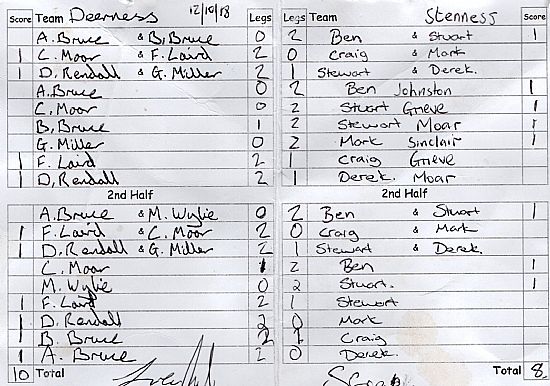 Score Team Deerness 12/10/18 Legs Legs Team Stenness Score
A. Bruce & B. Bruce 0 2 Ben & Stuart 1
1 C. Moor & F. Laird 2 0 Craig & Mark
1 D. Rendall & G. Miller 2 1 Stewart & Derek.
A. Bruce 0 2 Ben Johnston 1
C. Moor 0 2 Stuart Grieve 1
B. Bruce 1 2 Stewart Moar 1
G. Miller 0 2 Mark Sinclair 1
1 F. Laird 2 1 Craig Grieve
1 D. Rendall 2 1 Derek. Moar
2nd Half 2nd Half
A. Bruce & M. Wylie 0 2 Ben & Stuart 1
1 F. Laird & C. Moor 2 0 Craig & Mark
1 D. Rendall & G. Miller 2 1 Stewart & Derek.
C. Moor 1 2 Ben 1
M. Wylie 0 2 Stuart. 1
1 F. Laird 2 1 Stewart
1 D. Rendall 2 0 Mark
1 B. Bruce 2 1 Craig
1 A. Bruce 2 0 Derek.
10 Total Total 8